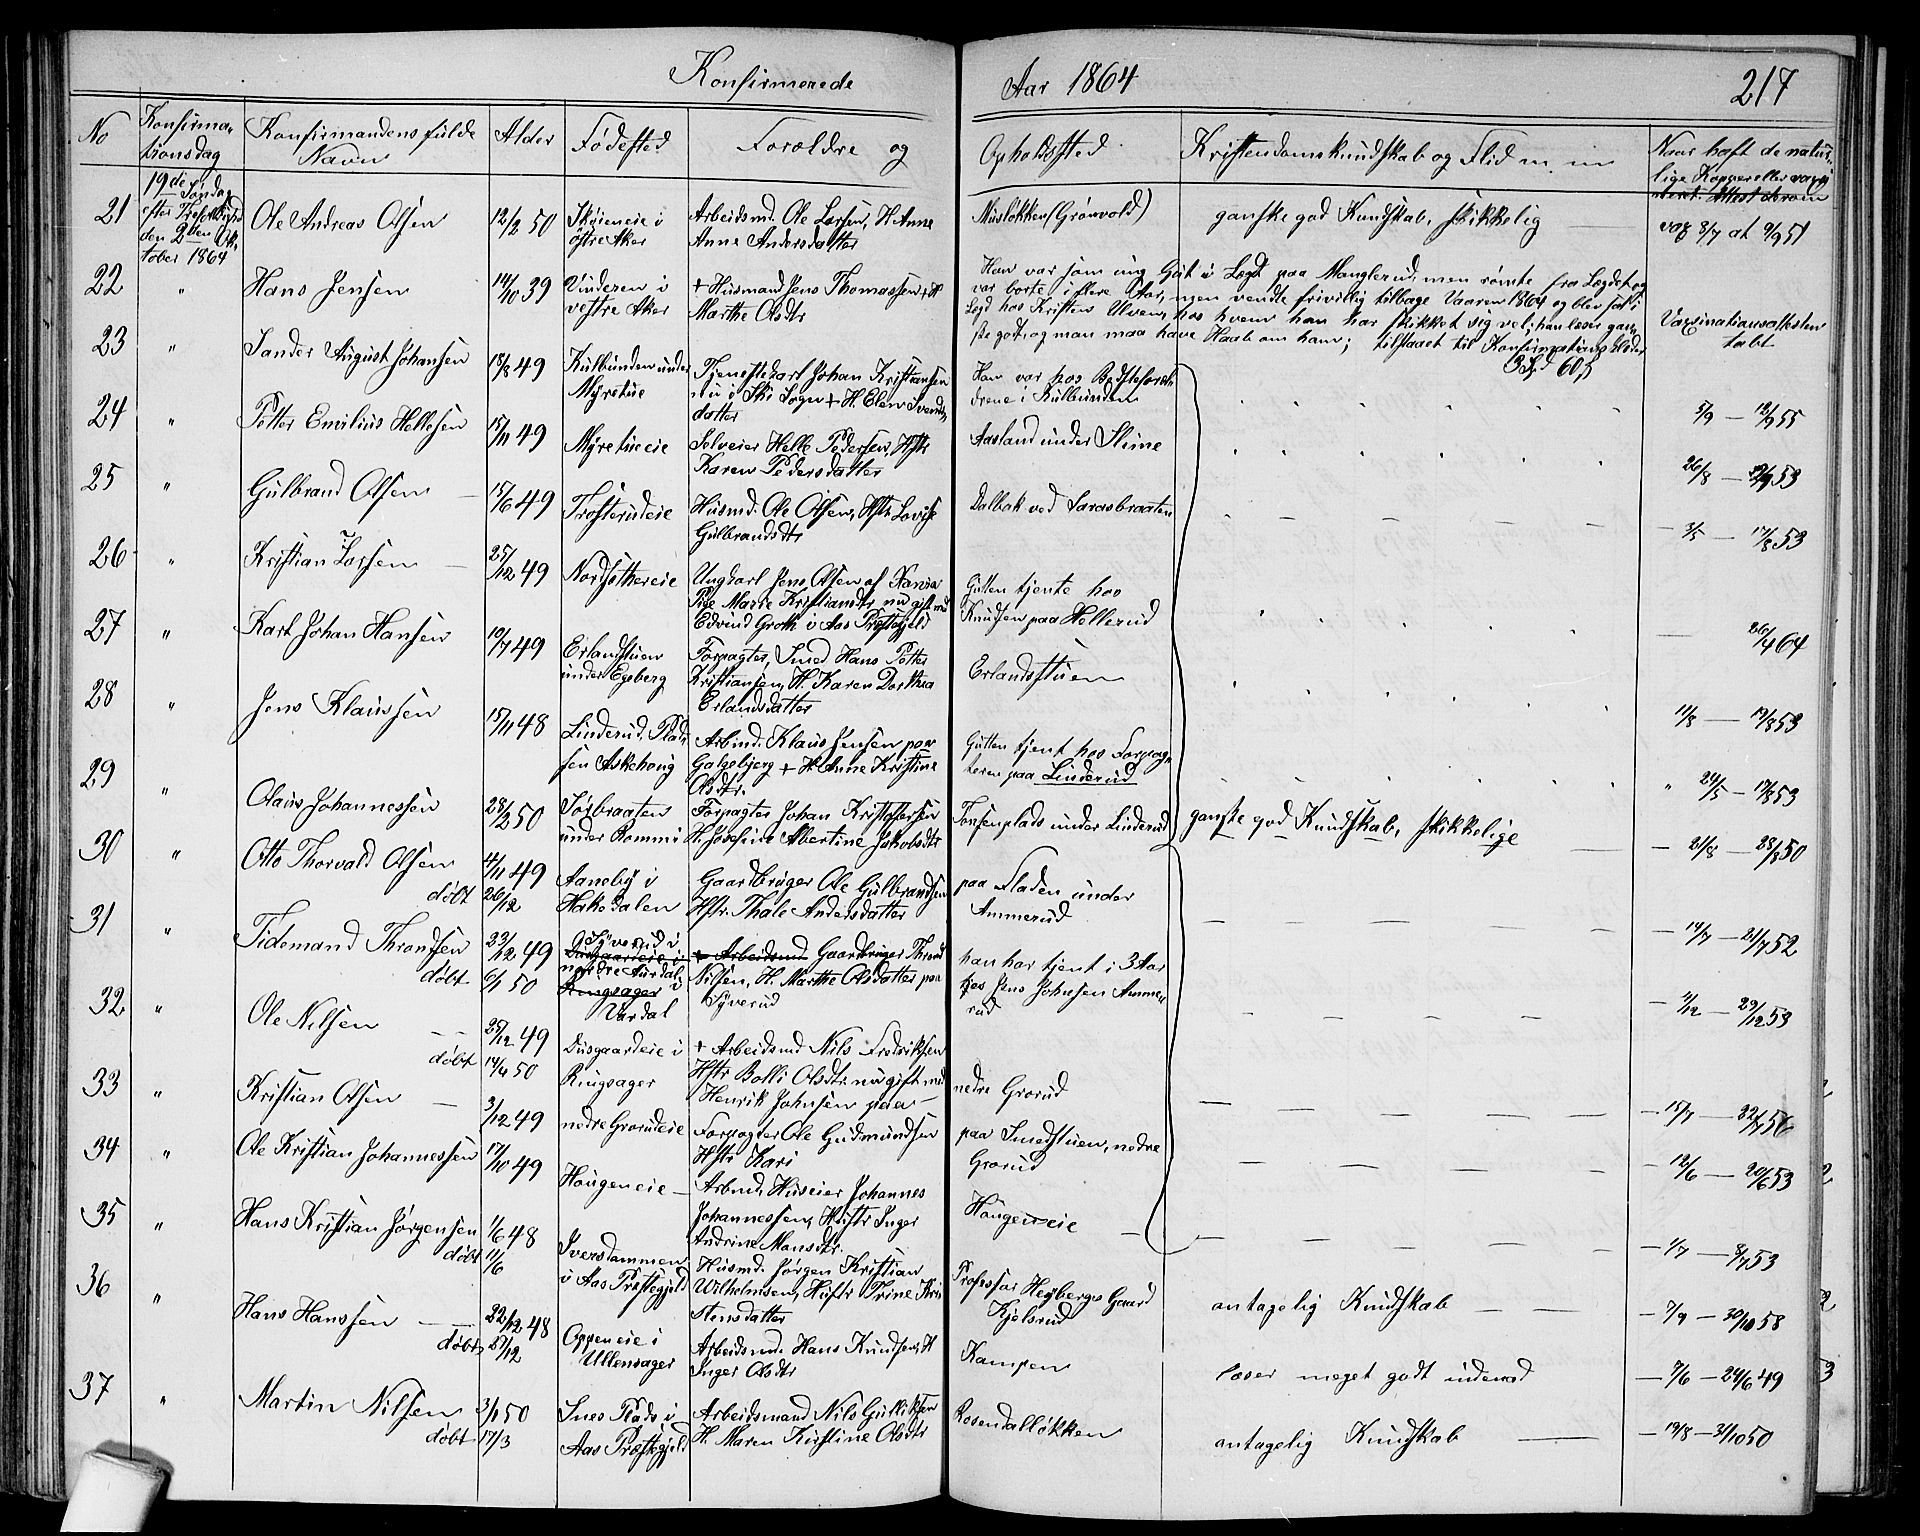 Konfirmerede Aar 1864 217
No Konfirma- Konfirmandens fulde Alder Fødested Forældre og Opholdssted. Kristendomskundskab og Flid m m Naar haft de natur-
tionsdag Navn lige Kopper eller vax
19de Søndag
efter Trefoldighed
den 2den Ok-
tober 1864
21 Ole Andreas Olsen 12/2 50 Skøieneie i Arbeidsmd. Ole Larsen, H. Anne Munkløkken (Grønvold) ganske god Kundskab, skikkelig — vax 3/7 at 9/9 51
østre Aker Anne Andersdatter
22 " Hans Jensen 14/10 39 Vinderen i + Husmand Jens Thomassen + H.
vestre Aker Marthe Olsdtr
Han var som ung Gut i Lægd paa Manglerud, men rømte fra Lægdet og
var borte i flere Aar, men vendte frivillig tilbage Vaaren 1864 og blev sat i
Lægd hos Kristen Ulven, hos hvem han har skikket sig vel; han læser gan-
ske godt og man maa have Haab om ham; tilstaaet til Konfirmationsklæder
3 Spd 60 ß
Vaxinationsattesten
tabt
23 " Sander August Johansen 18/8 49 Kulbunden under Tjenestekarl Johan Kristiansen Han var hos Bedsteforæl-
Myrstue nu i Ski Sogn + H. Elen Svends- drene i Kulbunden 5/9 — 12/9 55
datter
24 " Petter Emilius Hellesen 15/11 49 Myrstueeie Selveier Helle Pedersen, Hstr Aasland under Slime 26/8 — 2/9 53
Karen Pedersdatter
25 " Gulbrand Olsen — 15/6 49 Trosterudeie Husmd. Ole Olsen, Hstr Lovise Dalbak ved Sarasbraaten — 3/5 — 17/8 53
Gulbrandsdtr
26 " Kristian Larsen — 25/12 49 Nordsthereie Ungkarl Jens Olsen af Xania Gutten tjente hos
Pige Marie Kristiansdtr, nu gift med Knudsen paa Hellerud — 26/4 64
Edvind Groth i Aas Præstegjeld
27 " Karl Johan Hansen 10/7 49 Erlandstuen Forpagter, Smed Hans Petter Erlandsstuen 11/8 — 19/8 53
under Egeberg Kristiansen, H. Karen Dorthea
Erlandsdatter
28 " Jens Klaussen 15/11 48 Linderud, Plad- Arbmd. Klaus Jensen paa Gutten tjent hos Forpag-
sen Askehoug Galgebjerg + H. Anne Kristine teren paa Linderud " 24/5 — 17/8 53
Olsdtr.
29 " Olaus Johannessen 28/2 50 Sørbraaten Forpagter Johan Kristoffersen Tonsenplads under Linderud ganske god Kundskab, skikkelige — 21/8 — 28/8 50
under Rommen H. Josefine Albertine Jakobsdtr
30 " Otto Thorvald Olsen 4/11 49 Aaneby i Gaardbruger Ole Gulbrandsen paa Fladen under
døbt 26/12 Hakedalen Hstr. Thale Andersdatter Ammerud — 14/7 — 21/7 52
31 " Tidemand Throndsen 23/12 49 Syverud i + Arbeidsmd Gaardbruger Thrond han har tjent i 3 Aar
døbt 6/1 50 nordre Aurdal Nilsen, H. Marthe Olsdatter paa hos Jens Johnsen Amme- — 2/12 — 29/12 53
Ringsager i Syverud rud
Vardal
32 " Ole Nilsen — 25/12 49 Diesgaardeie i + Arbeidsmd Nils Fredriksen
døbt 14/4 50 Ringsager Hstr Bolli Olsdtr. nu gift med nedre Grorud — 15/7 — 22/7 56
Henrik Johnsen paa —
33 " Kristian Olsen — 3/12 49 nedre Grorudeie Forpagter Ole Gudmundsen paa Smedstuen, nedre
Hstr Kari Grorud — 12/6 — 20/6 53
34 " Ole Kristian Johannessen 17/10 49 Haugeneie — Arbmd, Huseier Johannes
Johannessen, Hustr Inger Haugeneie — — 1/7 — 8/7 53
Andrine Mansdtr.
35 " Hans Kristian Jørgensen 1/6 48 Sversdammen Husmd. Jørgen Kristian Professor Heybergs Gaard antagelig Kundskab — 7/9 — 30/10 58
døbt 11/6 i Aas Præstegjeld Wilhelmsen, Hustr Trine Kri- Kjelsrud
stensdatter
36 " Hans Hanssen — 22/12 48 Oppeneie i Arbeidsmd. Hans Knudsen, H. Kampen læser meget godt udenad — 7/6 — 24/6 49
døbt 27/12 Ullensager Inger Olsdtr
37 " Martin Nilsen 3/1 50 Snes Plads i Arbeidsmand Nils Gulliksen Rosendalløkken antagelig Kundskab — — 19/8 — 31/10 50
døbt 17/3 Aas Præstegjeld H. Maren Kirstine Olsdtr